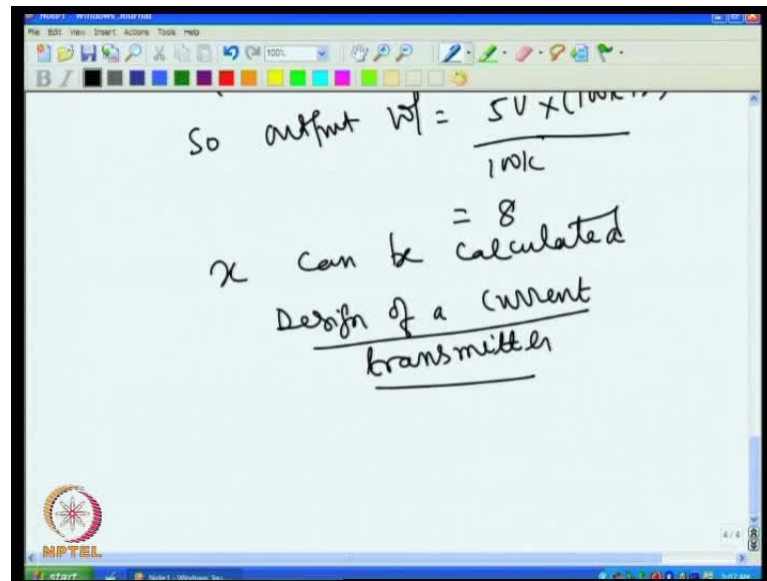 Note1 - Windows Journal
File Edit View Insert Actions Tools Help
100%
B I
So output vol = 5V x (100k+x)
100k
= 8
x can be calculated
Design of a current
transmitter
NPTEL
4/4
start Note1 - Windows Jou...
3:07 AM